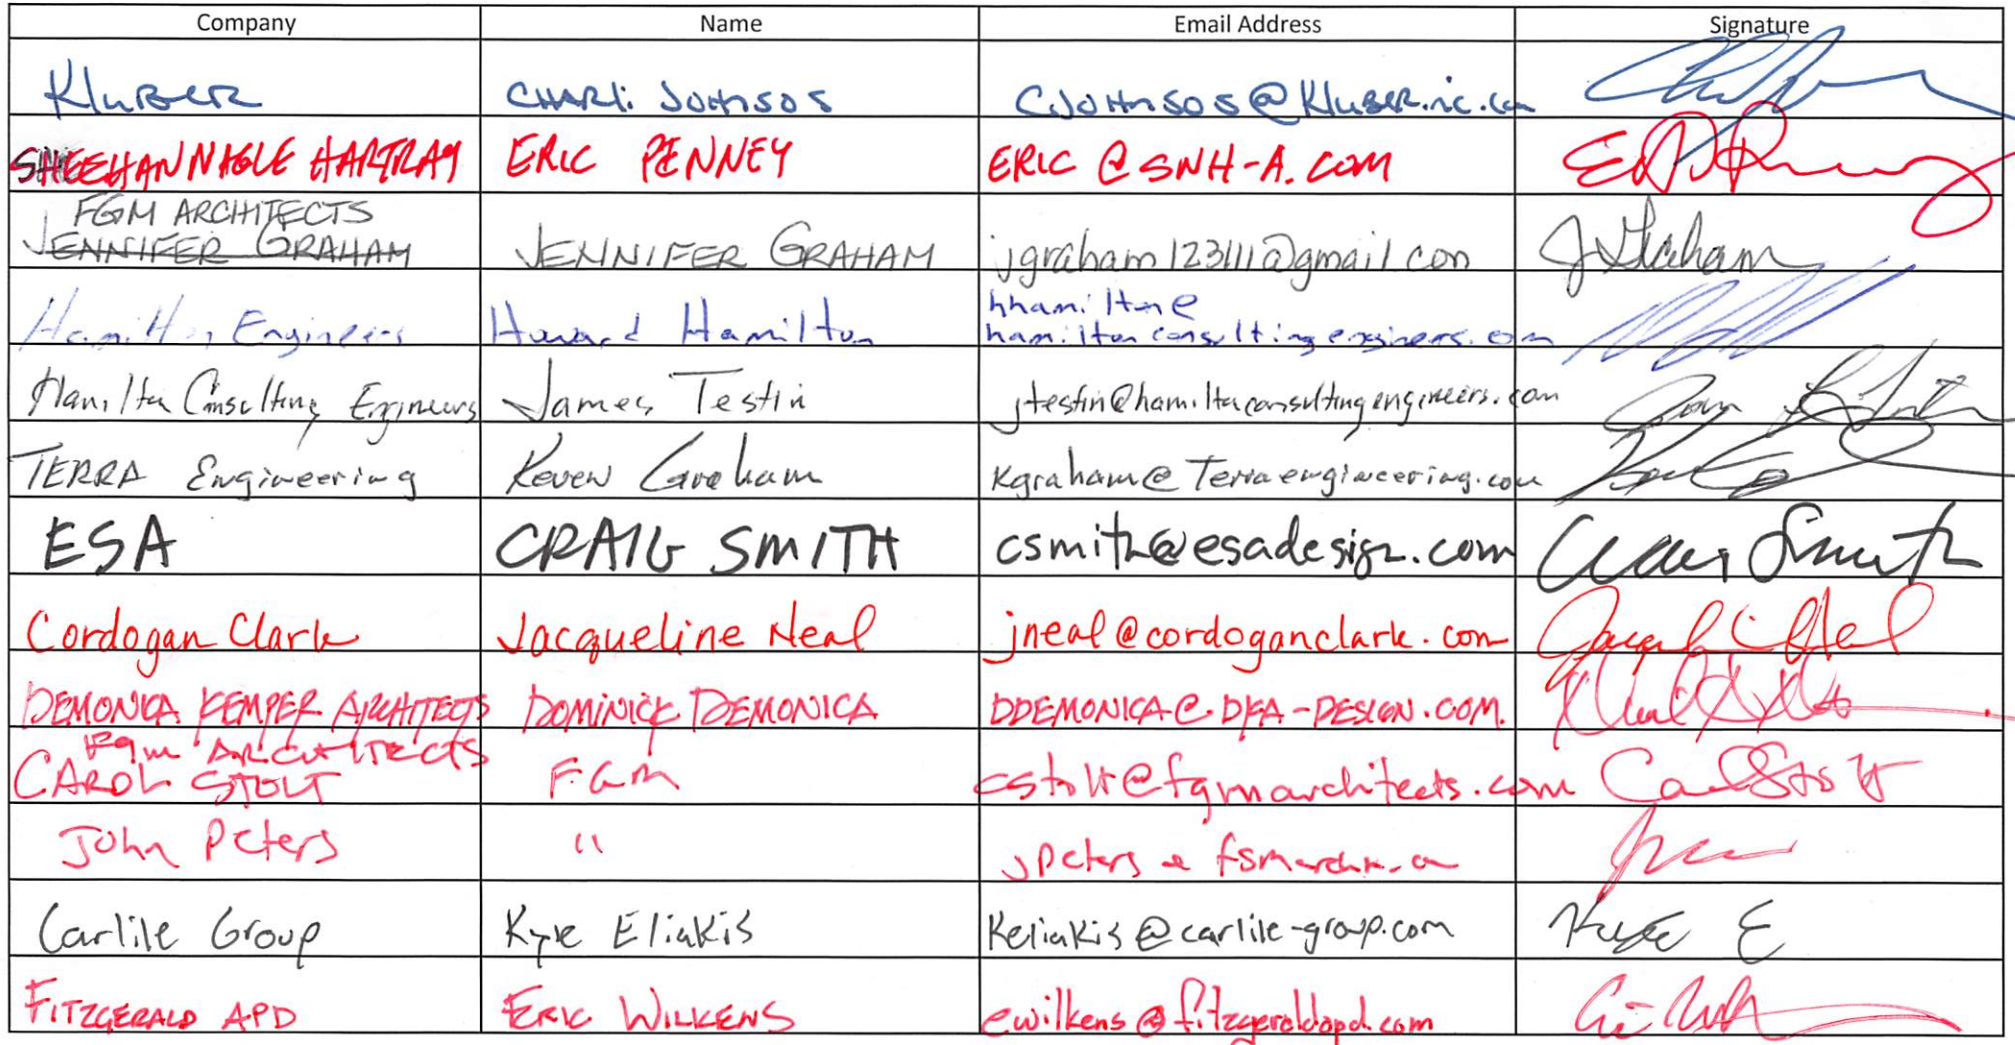 Company Name Email Address Signature
Kluber CHARLi JOHNSOS CJOHNSOS@Kluber.nc.com
SHEEHAN NAGLE HARTRAY ERIC PENNEY ERIC @ SNH-A.COM
FGM ARCHITECTS
JENNIFER GRAHAM JENNIFER GRAHAM jgraham123111@gmail.com J Graham
hhamilton@
Hamilton Engineers Howard Hamilton hamiltonconsultingengineers.com
Hamilton Consulting Engineers James Testin jtestin@hamiltonconsultingengineers.com
TERRA Engineering Keven Graham Kgraham@Terraengineering.com
ESA CRAIG SMITH csmith@esadesign.com Craig Smith
Cordogan Clark Jacqueline Neal jneal@cordoganclark.com
DEMONICA KEMPER ARCHITECTS DOMINICK DEMONICA DDEMONICA@DKA-DESIGN.COM.
Fgm ARCHITECTS
CAROL STOLT F.Gm cstolt@fgmarchitects.com Carol Stolt
John Peters " jpeters@
Carlile Group Kyle Eliakis Keliakis@carlile-group.com Kyle E
FITZGERALD APD ERIC WILKENS ewilkens@fitzgeraldapd.com